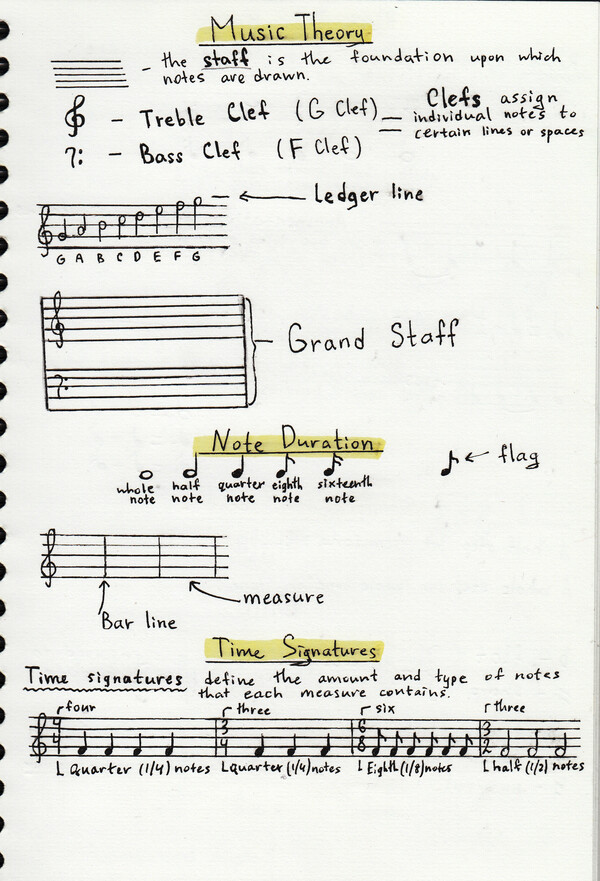 Music Theory
- the staff is the foundation upon which
notes are drawn.
- Treble Clef (G Clef)
- Bass Clef (F Clef)
Clefs assign
individual notes to
certain lines or spaces
Ledger line
G A B C D E F G
Grand Staff
Note Duration
flag
whole note
half note
quarter note
eighth note
sixteenth note
measure
Bar line
Time Signatures
Time signatures define the amount and type of notes
that each measure contains.
four three six three
4 3 6 3
4 4 8 2
Quarter (1/4) notes quarter (1/4) notes Eighth (1/8) notes half (1/2) notes